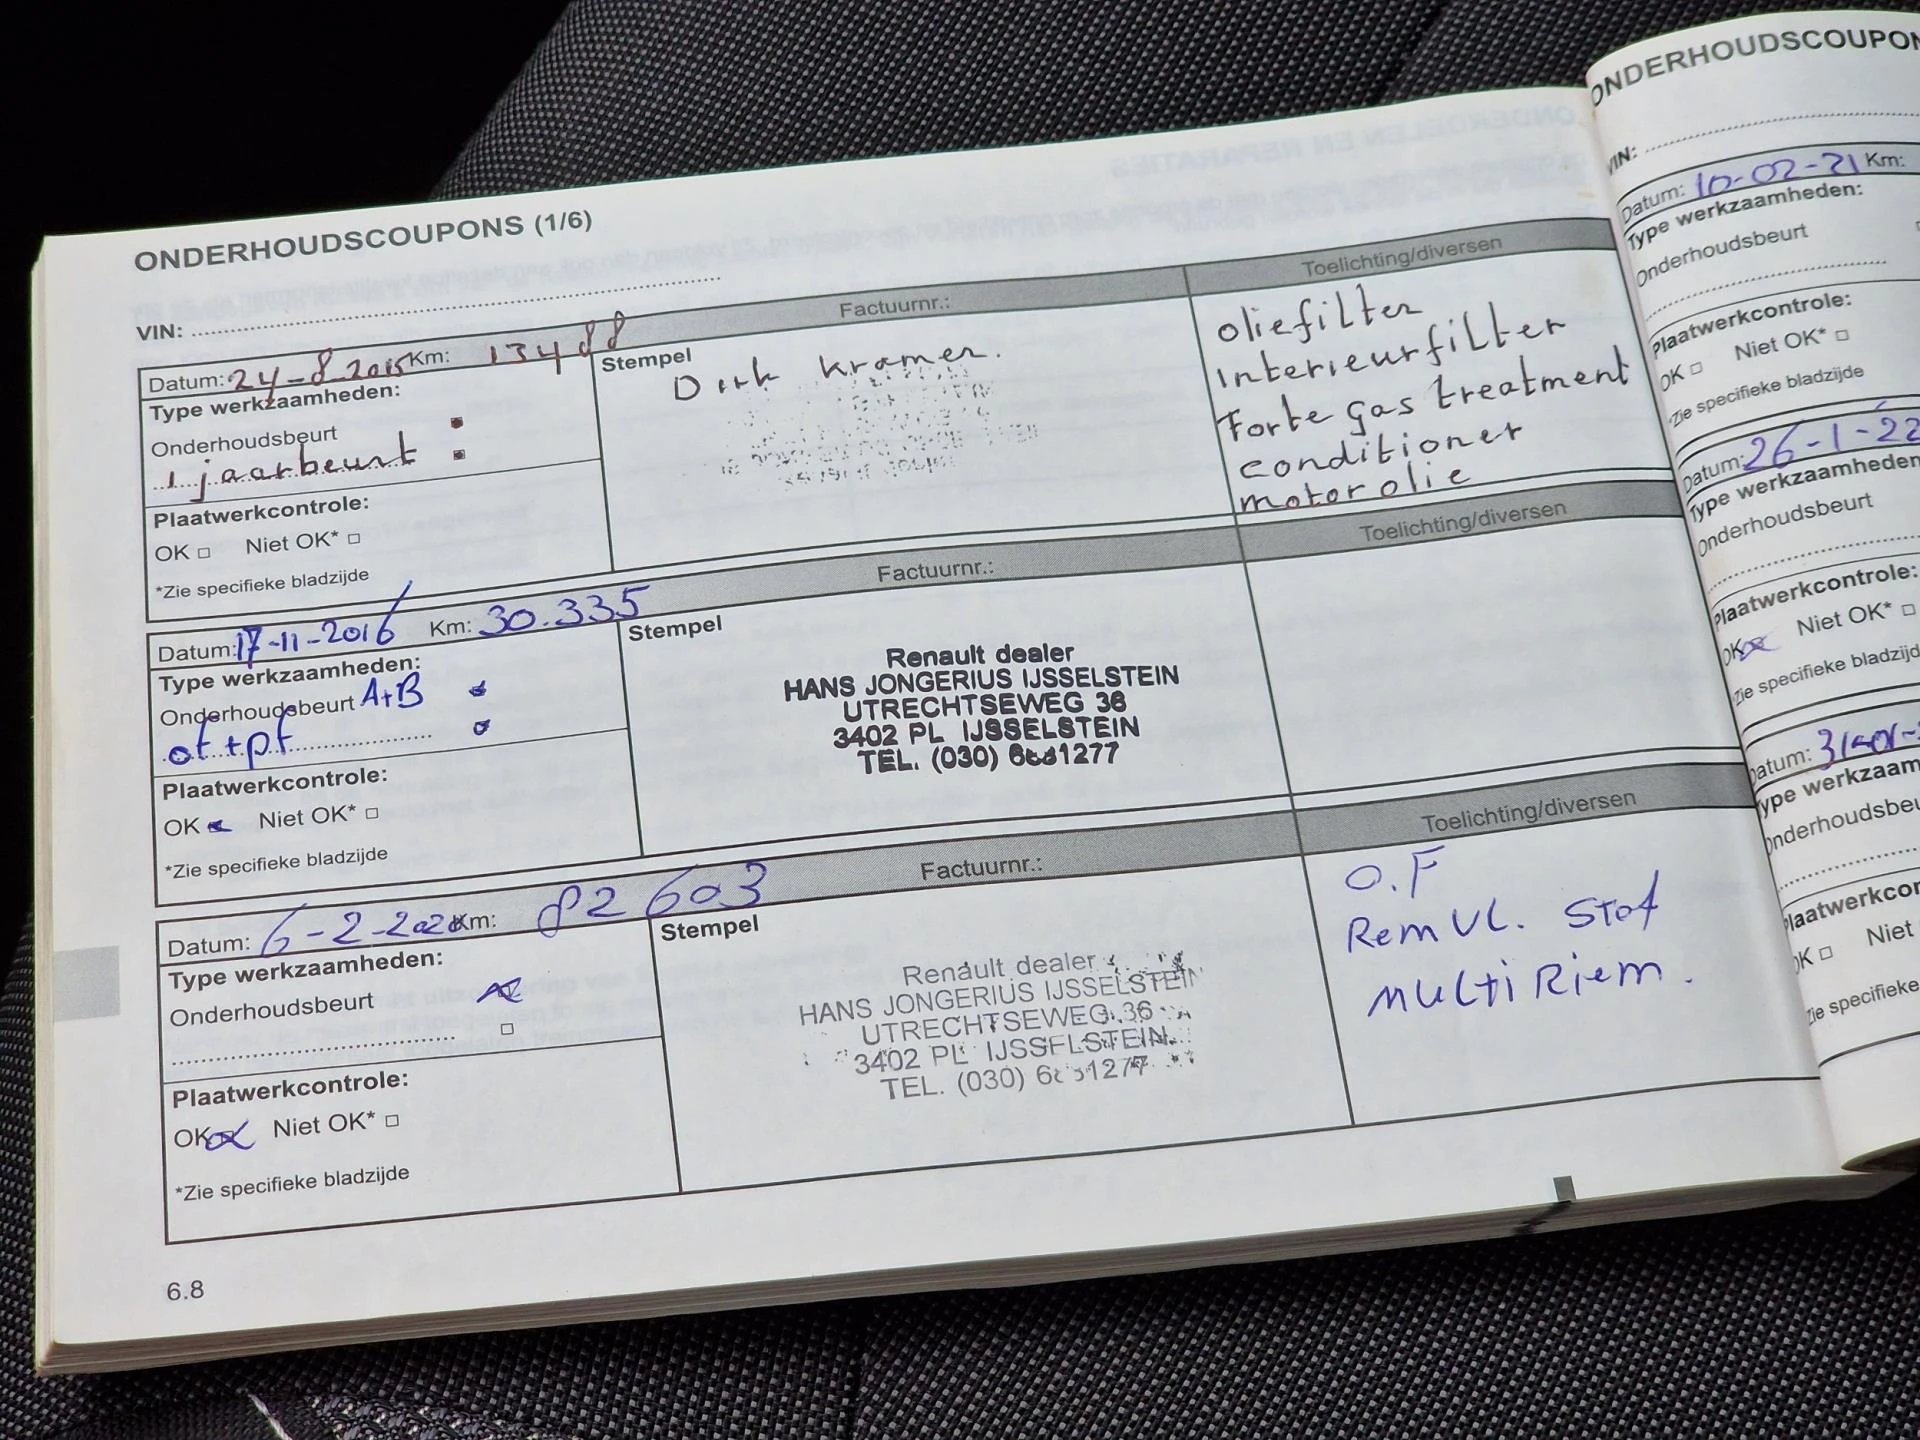 ONDERHOUDSCOUPONS (1/6)
VIN:
Datum: 24-8-2015 Km: 13488 Factuurnr.: Toelichting/diversen
Type werkzaamheden:
Onderhoudsbeurt
1 jaarbeurt
Plaatwerkcontrole:
OK Niet OK*
*Zie specifieke bladzijde
Stempel
Dirk Kramer.
oliefilter
interieurfilter
Forte gas treatment
conditioner
motorolie
Datum: 17-11-2016 Km: 30.335 Factuurnr.: Toelichting/diversen
Type werkzaamheden:
Onderhoudsbeurt A+B
of + pf
Plaatwerkcontrole:
OK Niet OK*
*Zie specifieke bladzijde
Stempel
Renault dealer
HANS JONGERIUS IJSSELSTEIN
UTRECHTSEWEG 36
3402 PL IJSSELSTEIN
TEL. (030) 6881277
Datum: 6-2-2020 Km: 82603 Factuurnr.: Toelichting/diversen
Type werkzaamheden:
Onderhoudsbeurt
Plaatwerkcontrole:
OK Niet OK*
*Zie specifieke bladzijde
Stempel
Renault dealer
HANS JONGERIUS IJSSELSTEIN
UTRECHTSEWEG 36
3402 PL IJSSELSTEIN
TEL. (030) 6881277
O.F
Rem VL. Stof
Multi Riem.
6.8
ONDERHOUDSCOUPON
VIN:
Datum: 10-02-21 Km:
Type werkzaamheden:
Onderhoudsbeurt
Plaatwerkcontrole:
OK Niet OK*
*Zie specifieke bladzijde
Datum: 26-1-22
Type werkzaamheden
Onderhoudsbeurt
Plaatwerkcontrole:
OK Niet OK*
Zie specifieke bladzijd
Datum:
Type werkzaam
Onderhoudsbeu
Plaatwerkcon
OK Niet
Zie specifieke